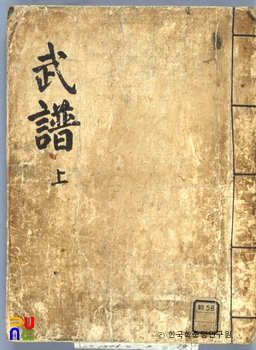 武譜
上
58
© 한국학중앙연구원